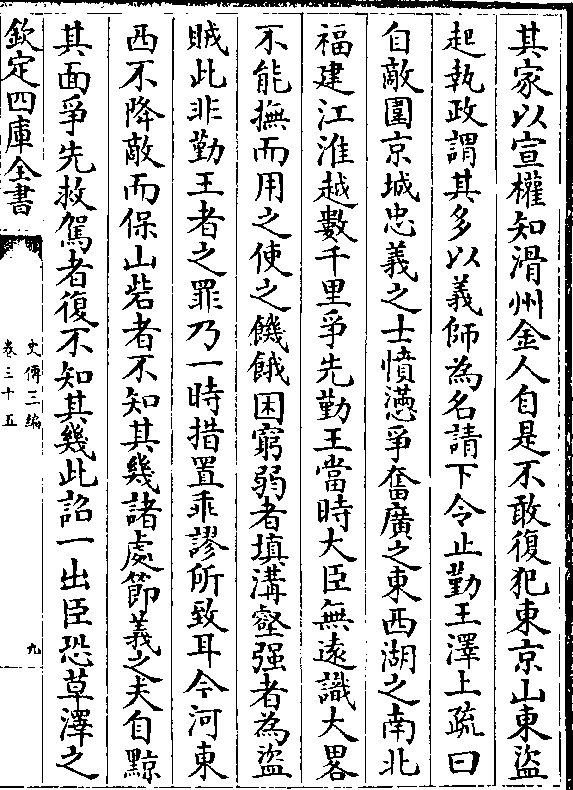 其家以宣權知滑州金人自是不敢復犯東京山東盜
起執政謂其多以義師為名請下令止勤王澤上疏曰
自敵圍京城忠義之士憤懣爭奮廣之東西湖之南北
福建江淮越數千里爭先勤王當時大臣無遠識大畧
不能撫而用之使之饑餓困窮弱者填溝壑强者為盜
賊此非勤王者之罪乃一時措置乖謬所致耳今河東
西不降敵而保山砦者不知其幾諸處節義之夫自黥
其面爭先救駕者復不知其幾此詔一出臣恐草澤之
欽定四庫全書
史傳三編
卷三十五
九